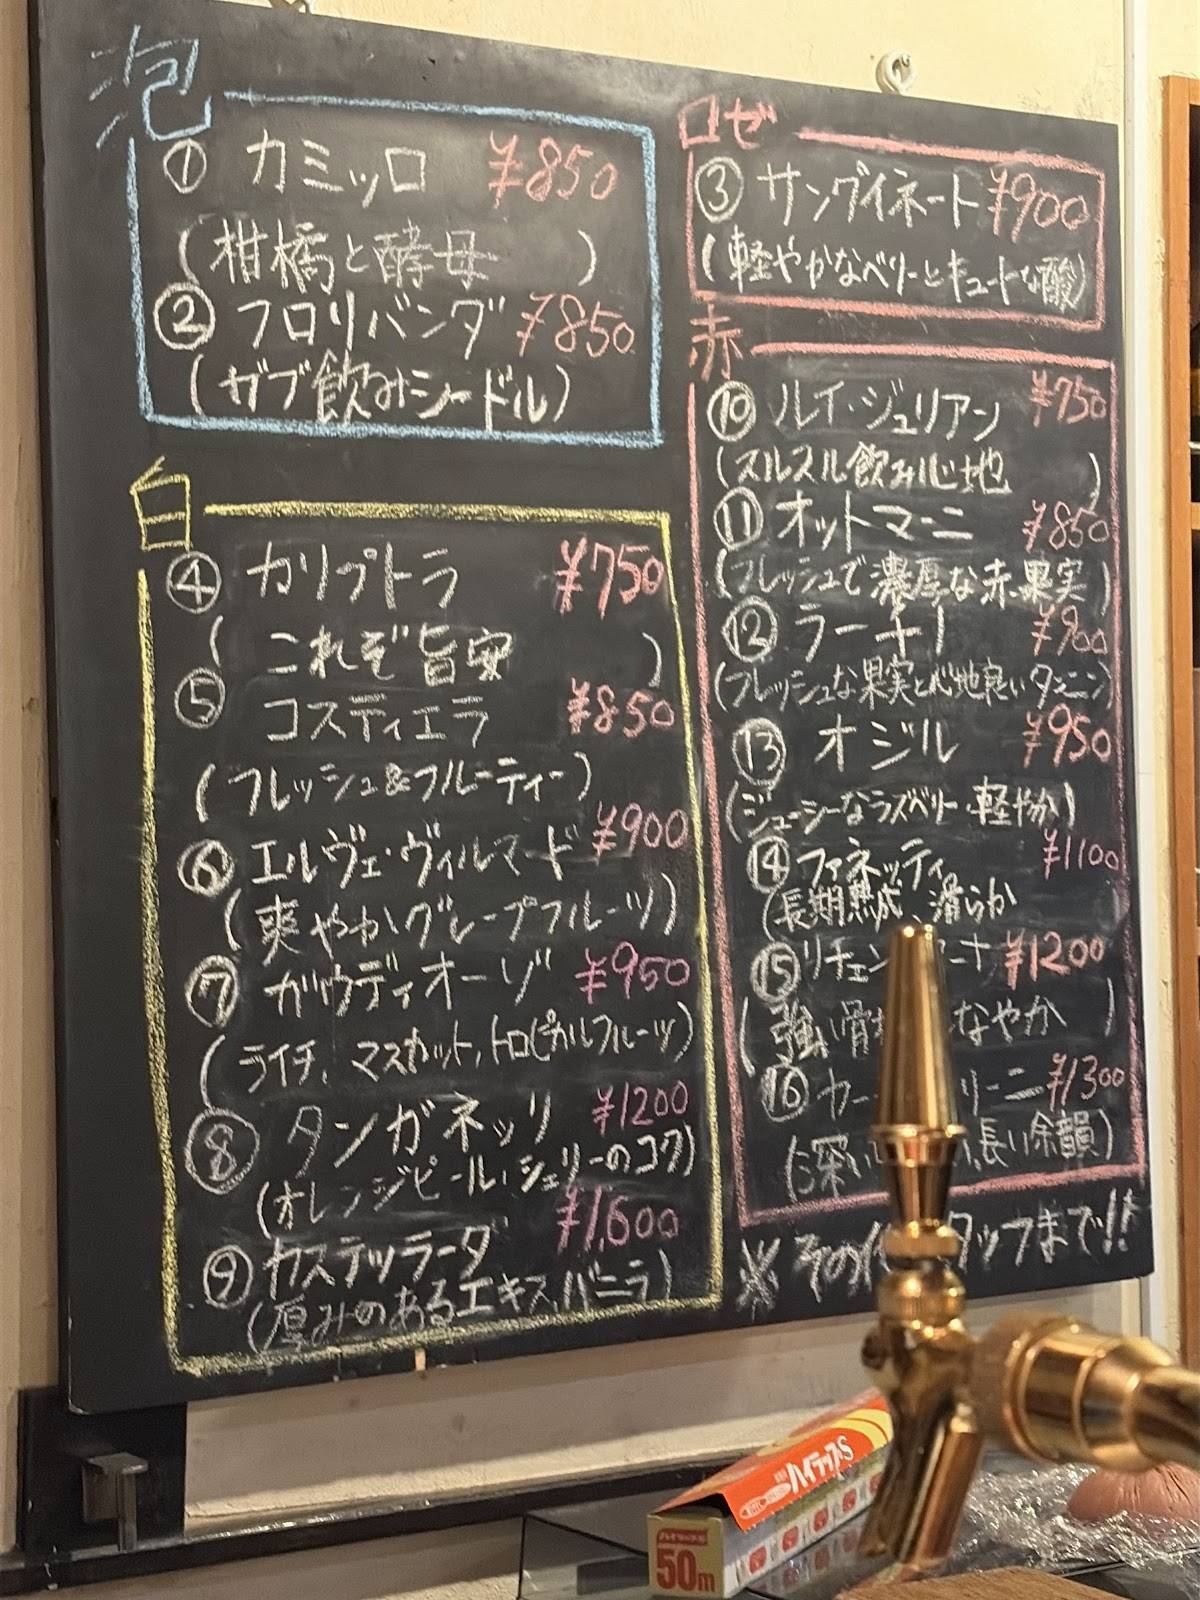 泡
① カミッロ ¥850
(柑橘と酵母 )
② フロリバンダ ¥850
(ガブ飲みシードル)
白
④ カリプトラ ¥750
( これぞ旨安 )
⑤ コスティエラ ¥850
(フレッシュ&フルーティー)
⑥ エルヴェ・ヴィルマード ¥900
(爽やかグレープフルーツ)
⑦ ガウディオーゾ ¥950
(ライチ、マスカット、トロピカルフルーツ)
⑧ タンガネッリ ¥1200
(オレンジピール、シェリーのコク)
⑨ カステッラーダ ¥1,600
(厚みのあるエキス、バニラ)
ロゼ
③ サングイネート ¥900
(軽やかなベリーとキュートな酸)
赤
⑩ ルイ・ジュリアン ¥750
(スルスル飲み心地 )
⑪ オットマーニ ¥850
(フレッシュで濃厚な赤果実)
⑫ ラーチノ ¥900
(フレッシュな果実と心地良いタンニン)
⑬ オジル ¥950
(ジューシーなラズベリー・軽やか)
⑭ ファネッティ ¥1100
(長期熟成、滑らか
⑮ リチェン ーナ ¥1200
(強い骨 なやか )
⑯ カー リーニ ¥1300
(深い 、長い余韻)
※ その他 タッフまで!!
ハイラップS
50m